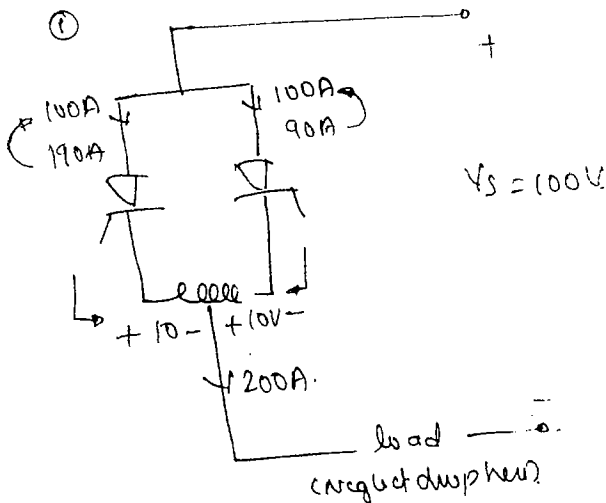 ①
+
100A 100A
190A 90A
Vs = 100V
+ 10 - + 10V -
200A.
load -
(neglect drop here)